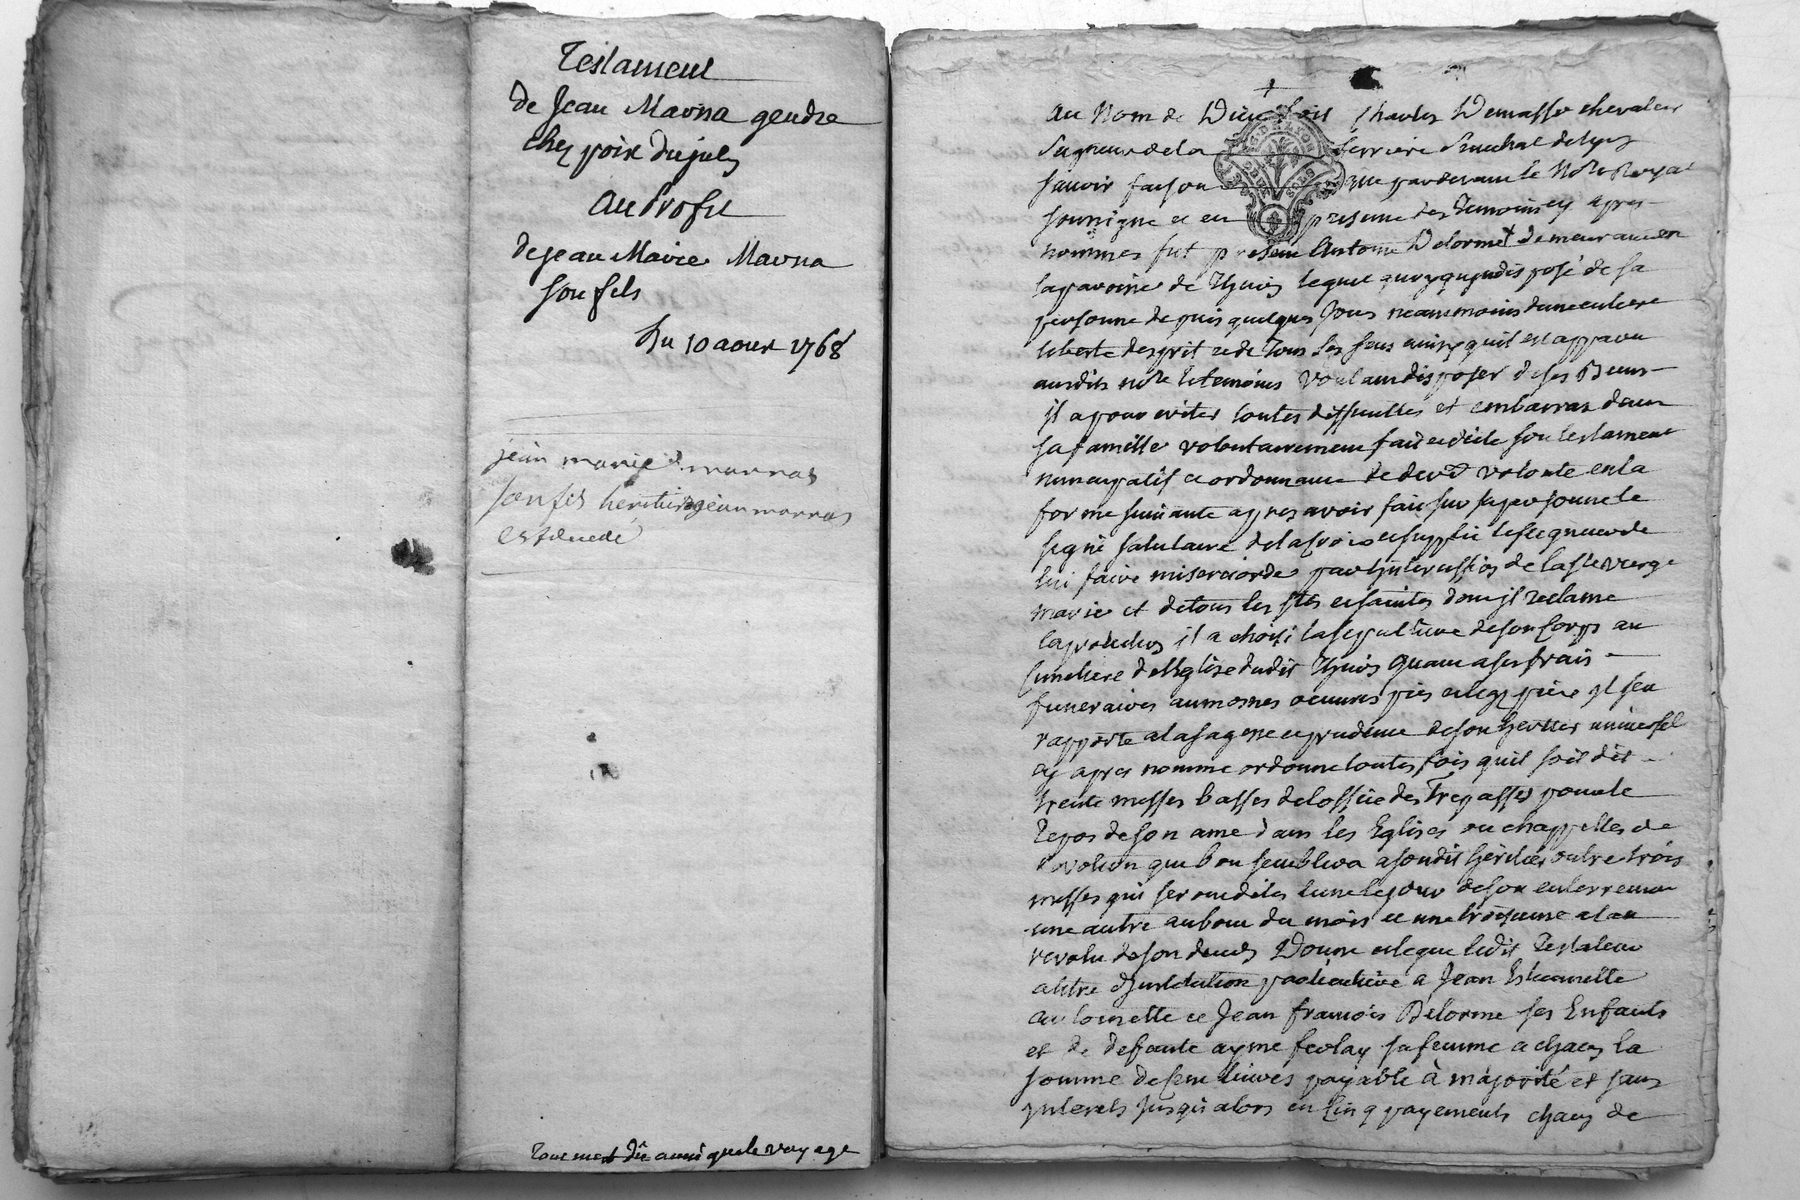 Testament
de Jean Marna gendre
chez poix dujuls
au Profit
de jean Marie Marna
son fils
Du 10 aoust 1768
jean marie marnas
son fils heritier jean marnas
est decedé
Tout m'est dû ainsi que le voyage
au Nom de Dieu soit Charles Demasso chevalier
Seigneur de la ferriere Senechal de Lyon
sçavoir faison que pardevant le No.re Royal
soussigne et en presence des temoins cy apres
nommes fut present Antoine Delorme demeurant en
la paroisse de lequel quoyqu'indisposé de sa
personne depuis quelques jours neanmoins dune entiere
liberte desprit et de tous ses sens ainsy quil est apparu
ausdits no.re et temoins voulant disposer de ses Biens
il a pour eviter toutes difficultes et embarras dans
sa famille volontairement fait et dicte son testament
nuncupatif et ordonnance de derd volonte en la
forme suivante apres avoir fait sur sa personne le
signe salutaire de la croix et supplié le seigneur de
lui faire misericorde par de la ste vierge
marie et de tous les sts et saintes dont jl reclame
il a choisi la sepulture de son corps au
cimetiere de leglise dudit quant a ses frais
funeraires aumosnes oeuvres pies et legs pieux jl sen
rapporte a la sagesse et prudence de son heritier universel
cy apres nomme ordonne toutes fois quil soit dit
trente messes basses de loffice des Trepasses pour le
repos de son ame dans les Eglises ou chappelles de
devotion que bon semblera a sondit heritier outre trois
messes qui seront dites lune le jour de son enterrement
une autre au bout du mois et une troisieme a lan
revolu de son deces Donne et legue ledit Testateur
a titre dinstitution particuliere a Jean
et Jean francois Delorme ses Enfants
et de defunte ayme sa femme a chacun la
somme de livres payable à majorité et sans
jnterets jusqu'alors en cinq payements chacun de